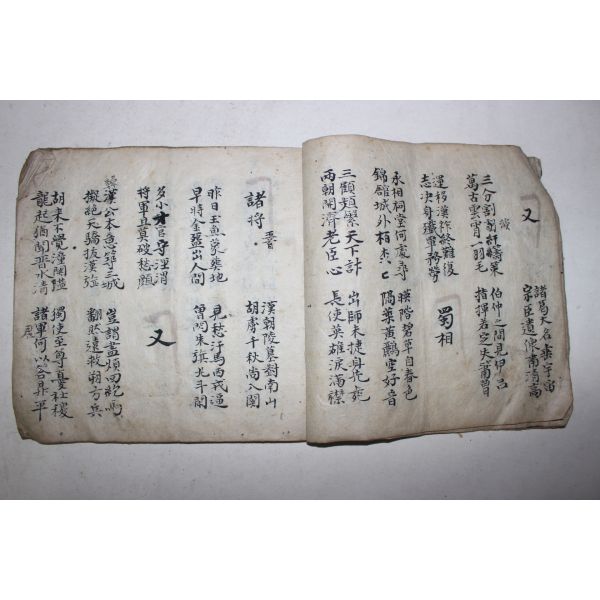 又
諸葛大名垂宇宙
宗臣遺像肅清高
三分割據紆籌策
萬古雲霄一羽毛
伯仲之間見伊呂
指揮若定失蕭曹
運移漢祚終難復
志決身殲軍務勞
蜀相
丞相祠堂何處尋
錦館城外柏
映階碧草自春色
隔葉黃鸝空好音
三顧頻繁天下計
兩朝開濟老臣心
出師未捷身先死
長使英雄淚滿襟
諸將
漢朝陵墓對南山
胡虜千秋尚入關
昨日玉魚蒙葬地
早時金盌出人間
見愁汗馬西戎逼
曾閃朱旗北斗閑
多少才官守涇渭
將軍且莫破愁顔
又
漢公本意築三城
擬絶天驕拔漢旌
豈謂盡煩回紇馬
翻然遠救朔方兵
胡來不覺潼關隘
龍起猶聞晉水清
獨使至尊憂社稷
諸軍何以答昇平